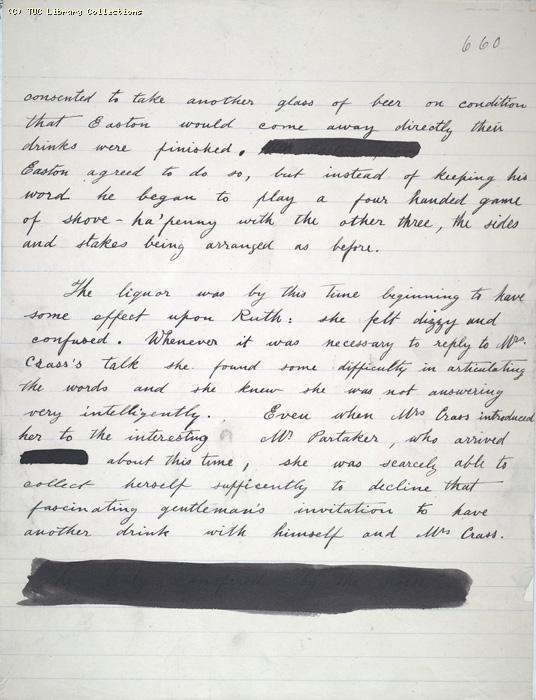 (C) TUC Library Collections
660
consented to take another glass of beer on condition
that Easton would come away directly their
drinks were finished.
Easton agreed to do so, but instead of keeping his
word he began to play a four handed game
of shove-ha'penny with the other three, the sides
and stakes being arranged as before.
The liquor was by this time beginning to have
some effect upon Ruth: she felt dizzy and
confused. Whenever it was necessary to reply to Mrs.
Crass's talk she found some difficulty in articulating
the words and she knew she was not answering
very intelligently. Even when Mrs Crass introduced
her to the interesting Mr Partaker, who arrived
about this time, she was scarcely able to
collect herself sufficently to decline that
fascinating gentleman's invitation to have
another drink with himself and Mrs Crass.